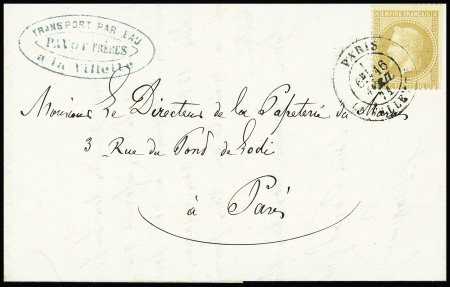 TRANSPORT PAR EAU
PAVOT FRÈRES
a la Villette
EMPIRE FRANÇAIS
PARIS
16
71
LA VILLETTE
Monsieur Le Directeur de la Papeterie du Marais
3 Rue du Pont de Lodi
à Paris